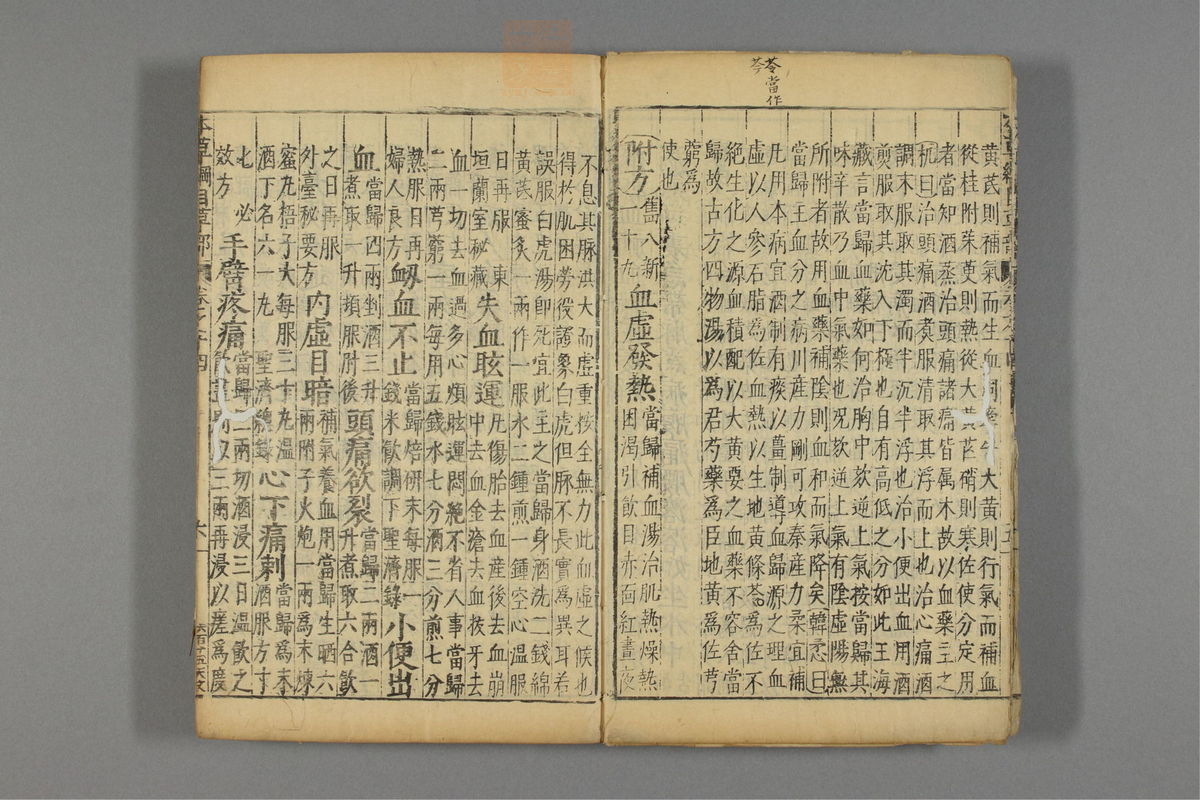 苓當作
芩
黃芪則補氣而生血同牽牛大黃則行氣而補血
從桂附茱萸則熱從大黃芒硝則寒佐使分定用
者當知酒蒸治頭痛諸痛皆属木故以血藥主之
机曰治頭痛酒煑服清取其浮而上也治心痛酒
調末服取其濁而半沉半浮也治小便出血用酒
煎服取其沈入下極也自有高低之分如此王海
藏言當歸血藥如何治胸中欬逆上氣按當歸其
味辛散乃血中氣藥也况欬逆上氣有陰虛陽無
所附者故用血藥補陰則血和而氣降矣韓𢘅曰
當歸主血分之病川産力剛可攻秦産力柔宜補
凡用本病宜酒制有痰以薑制導血歸源之理血
虛以人參石脂為佐血熱以生地黃條苓為佐不
絶生化之源血積配以大黃要之血藥不容舍當
歸故古方四物湯以為君芍藥為臣地黃為佐芎
藭為
使也
附方舊八新一十九血虛發熱當歸補血湯治肌熱燥熱
困渴引飲目赤面紅晝夜
不息其脉洪大而虛重按全無力此血虛之候也
得於肌困勞役證象白虎但脉不長實為異耳若
誤服白虎湯卽死宜此主之當歸身酒洗二錢綿
黃芪蜜炙一兩作一服水二鍾煎一鍾空心温服
日再服東
垣蘭室秘藏失血眩運凡傷胎去血産後去血崩
中去血金瘡去血拔牙去
血一切去血過多心煩眩運悶絶不省人事當歸
二兩芎藭一兩每用五錢水七分酒三分煎七分
熱服日再
婦人良方衂血不止當歸焙研末每服一
錢米飲調下聖濟錄小便出
血當歸四兩剉酒三升
煮取一升頓服肘後頭痛欲裂當歸二兩酒一
升煮取六合飲
之日再服
外臺秘要方内虛目暗補氣養血用當歸生晒六
兩附子火炮一兩為末煉
蜜丸梧子大每服三十丸温
酒丁名六一丸聖濟總錄心下痛刺當歸為末
酒服方寸
匕必
效方手臂疼痛當歸三兩切酒浸三日温飲之
飲盡别取三兩再浸以瘥為度